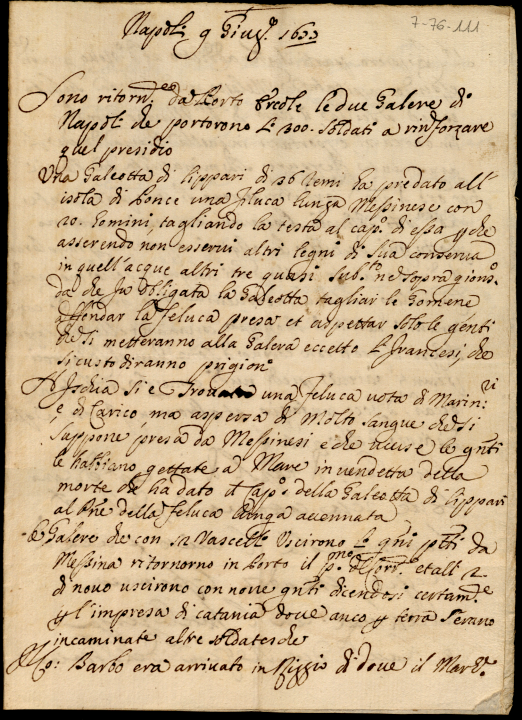 Napoli 9 Giug.o 1633
7-76-111
Sono ritorn.te da Porto Ercole le due Galere di
Napoli che portorono li 300. soldati a rinforzare
quel presidio
Una Galeotta di Lippari di 26 remi ha predato all'
isola di Ponce una filuca lunga Messinese con
20. homini, tagliando la testa al cap.o di essa p che
asserendo non esservi altri legni di sua conserva
in quell'acque altri tre quasi sub.to ne sopragions.
da che fu obligata la Galeotta tagliar le Gomene
et aspettar solo le genti
che si metteranno alla Galera eccetto li francesi, che
si custodiranno prigion.i
A Ischia si è trovata una feluca vota di Marin.ri
e di Carico ma aspersa di molto sangue che si
suppone presa da Messinesi e che uccise le genti
le habbiano gettate a Mare in vendetta della
morte che ha dato il Cap.o della Galeotta di Lippari
al della feluca lunga accennata
Le Galere che con 12 Vascelli uscirono da
Messina ritornorno in Porto il p.mo del etall 2
di novo uscirono con nove dicendosi certam.te
p l'impresa di Catania dove anco p terra s'erano
incaminate altre soldatesche
Barbò era arrivato in Riggio di dove il